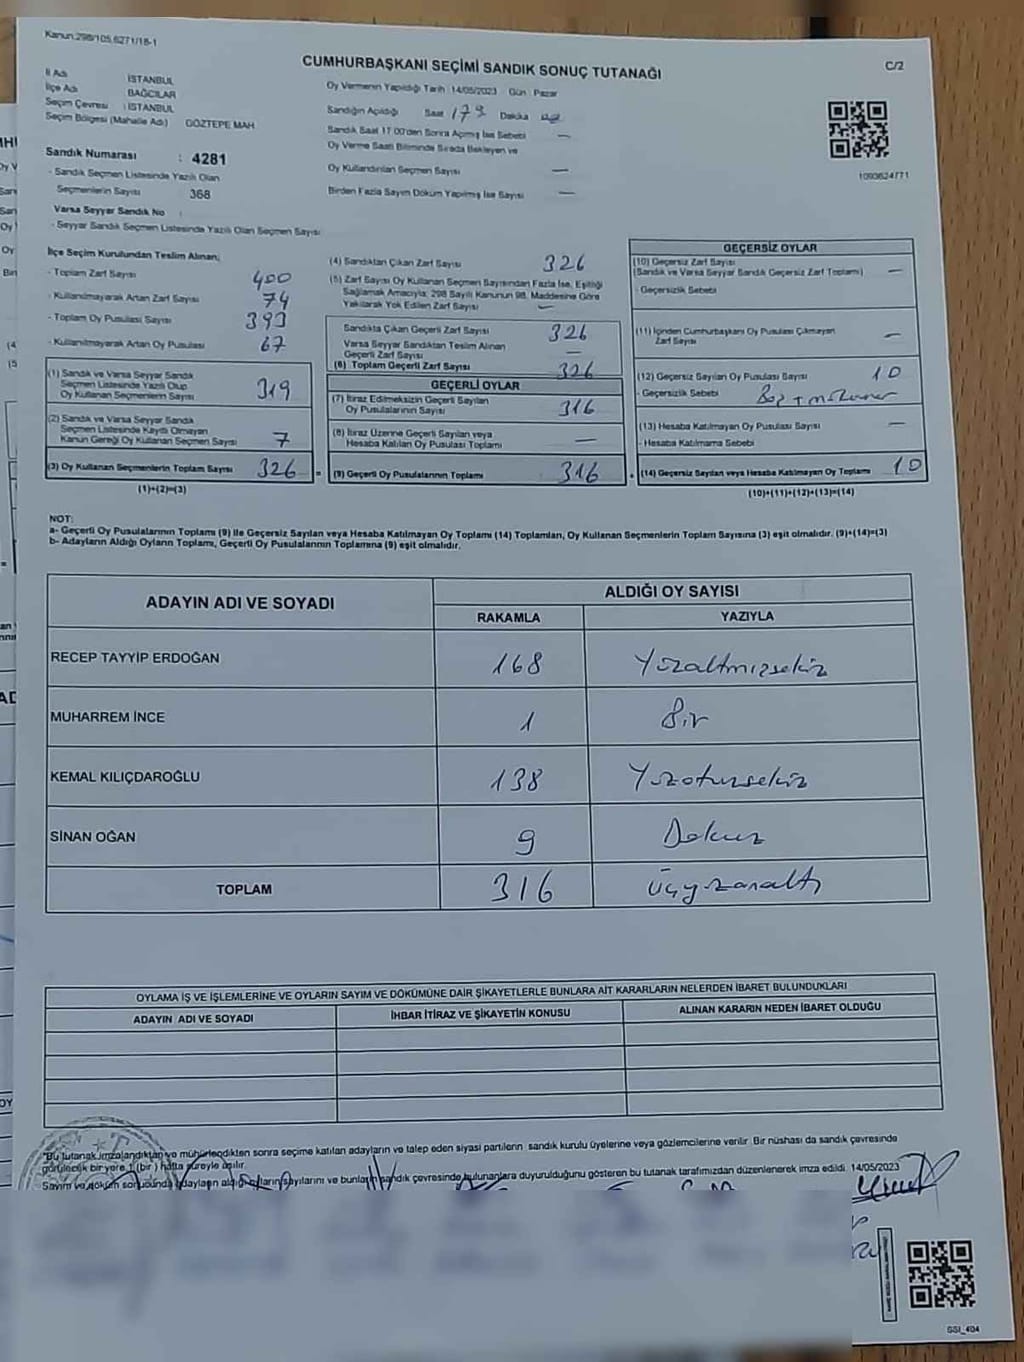 Kanun.298/105,6271/18-1
CUMHURBAŞKANI SEÇİMİ SANDIK SONUÇ TUTANAĞI
C/2
İl Adı İSTANBUL
İlçe Adı BAĞCILAR
Seçim Çevresi : İSTANBUL
Seçim Bölgesi (Mahalle Adı) GÖZTEPE MAH
Sandık Numarası : 4281
- Sandık Seçmen Listesinde Yazılı Olan
Seçmenlerin Sayısı 368
Varsa Seyyar Sandık No
- Seyyar Sandık Seçmen Listesinde Yazılı Olan Seçmen Sayısı
Oy Vermenin Yapıldığı Tarih 14/05/2023 Gün : Pazar
Sandığın Açıldığı Saat Dakika
Sandık Saat 17.00'den Sonra Açılmış İse Sebebi —
Oy Verme Saati Bitiminde Sırada Bekleyen ve
Oy Kullandırılan Seçmen Sayısı —
Birden Fazla Sayım Döküm Yapılmış İse Sayısı —
1093624771
İlçe Seçim Kurulundan Teslim Alınan;
- Toplam Zarf Sayısı 400
- Kullanılmayarak Artan Zarf Sayısı 74
- Toplam Oy Pusulası Sayısı 393
- Kullanılmayarak Artan Oy Pusulası 67
(1) Sandık ve Varsa Seyyar Sandık
Seçmen Listesinde Yazılı Olup
Oy Kullanan Seçmenlerin Sayısı 319
(2) Sandık ve Varsa Seyyar Sandık
Seçmen Listesinde Kayıtlı Olmayan
Kanun Gereği Oy Kullanan Seçmen Sayısı 7
(3) Oy Kullanan Seçmenlerin Toplam Sayısı 326
(1)+(2)=(3)
(4) Sandıktan Çıkan Zarf Sayısı 326
(5) Zarf Sayısı Oy Kullanan Seçmen Sayısından Fazla İse, Eşitliği
Sağlamak Amacıyla; 298 Sayılı Kanunun 98. Maddesine Göre
Yakılarak Yok Edilen Zarf Sayısı —
Sandıkta Çıkan Geçerli Zarf Sayısı 326
Varsa Seyyar Sandıktan Teslim Alınan
Geçerli Zarf Sayısı —
(6) Toplam Geçerli Zarf Sayısı 326
GEÇERLİ OYLAR
(7) İtiraz Edilmeksizin Geçerli Sayılan
Oy Pusulalarının Sayısı 316
(8) İtiraz Üzerine Geçerli Sayılan veya
Hesaba Katılan Oy Pusulası Toplamı —
(9) Geçerli Oy Pusulalarının Toplamı 316
GEÇERSİZ OYLAR
(10) Geçersiz Zarf Sayısı
(Sandık ve Varsa Seyyar Sandık Geçersiz Zarf Toplamı) —
- Geçersizlik Sebebi
(11) İçinden Cumhurbaşkanı Oy Pusulası Çıkmayan
Zarf Sayısı —
(12) Geçersiz Sayılan Oy Pusulası Sayısı 10
- Geçersizlik Sebebi
(13) Hesaba Katılmayan Oy Pusulası Sayısı —
- Hesaba Katılmama Sebebi
(14) Geçersiz Sayılan veya Hesaba Katılmayan Oy Toplamı 10
(10)+(11)+(12)+(13)=(14)
NOT:
a- Geçerli Oy Pusulalarının Toplamı (9) ile Geçersiz Sayılan veya Hesaba Katılmayan Oy Toplamı (14) Toplamları, Oy Kullanan Seçmenlerin Toplam Sayısına (3) eşit olmalıdır. (9)+(14)=(3)
b- Adayların Aldığı Oyların Toplamı, Geçerli Oy Pusulalarının Toplamına (9) eşit olmalıdır.
ADAYIN ADI VE SOYADI ALDIĞI OY SAYISI
RAKAMLA YAZIYLA
RECEP TAYYİP ERDOĞAN 168 Yüzaltmışsekiz
MUHARREM İNCE 1 Bir
KEMAL KILIÇDAROĞLU 138 Yüzotuzsekiz
SİNAN OĞAN 9 Dokuz
TOPLAM 316 Üçyüzonaltı
OYLAMA İŞ VE İŞLEMLERİNE VE OYLARIN SAYIM VE DÖKÜMÜNE DAİR ŞİKAYETLERLE BUNLARA AİT KARARLARIN NELERDEN İBARET BULUNDUKLARI
ADAYIN ADI VE SOYADI İHBAR İTİRAZ VE ŞİKAYETİN KONUSU ALINAN KARARIN NEDEN İBARET OLDUĞU
"Bu tutanak imzalandıktan ve mühürlendikten sonra seçime katılan adayların ve talep eden siyasi partilerin sandık kurulu üyelerine veya gözlemcilerine verilir. Bir nüshası da sandık çevresinde
görülecek bir yere 1 (bir ) hafta süreyle asılır.
Sayım ve döküm sonucunda adayların aldığı oyların sayılarını ve bunların sandık çevresinde bulunanlara duyurulduğunu gösteren bu tutanak tarafımızdan düzenlenerek imza edildi. 14/05/2023
GSI_404